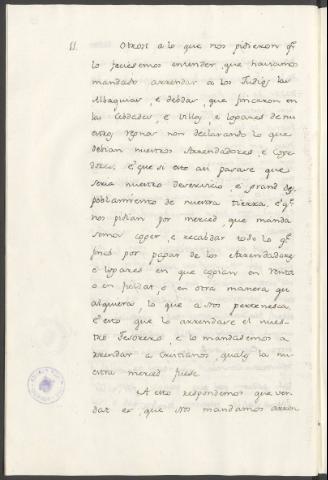 11. Otrosi a lo que nos pidieron q̃
lo ficiesemos entender, que haviamos
mandado arrendar a los Judios las
Albaquias, e debdas, que fincaron en
las Cibdades, e Villas, e logares de nu
estros regnos non declarando lo que
debian nuestros Arrendadores, e Coge
dores, e que si esto asi pasare que
seria nuestro deservicio, e grand des
poblamiento de nuestra tierra, e q̃
nos pidian por merced que manda
semos coger, e recabdar todo lo q̃
finco por pagar de los Arrendadores
e logares en que cogian en renta
o en fieldat, e en otra manera qu
alquiera lo que a Nos pertenesca,
e esto que lo arrendase el nues
tro Tesorero, e lo mandasemos a
rrendar a Cristianos, qual la nu
estra merced fuese.
A esto respondemos que ver
dat es, que Nos mandamos arren